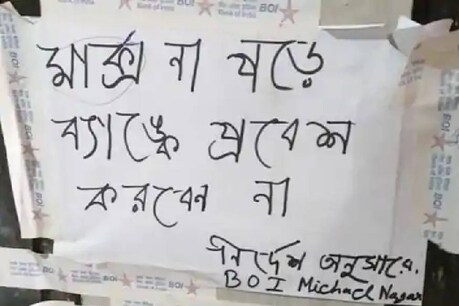 BOI
Bank of India
BOI
মার্ক্স না পড়ে
ব্যাঙ্কে প্রবেশ
করবেন না
নির্দেশ অনুসারে.
BOI Michael Nagar
BOI
BOI
BOI